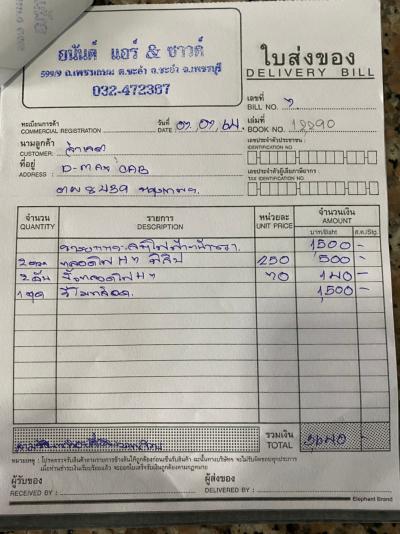 ยนันต์ แอร์ & ซาวด์
599/9 ถ.เพชรเกษม ต.ชะอำ อ.ชะอำ จ.เพชรบุรี
032-472387
ใบส่งของ
DELIVERY BILL
เลขที่
BILL NO.
ทะเบียนการค้า
COMMERCIAL REGISTRATION
วันที่
DATE
เล่มที่
BOOK NO. 12290
นามลูกค้า
CUSTOMER:
เลขประจำตัวประชาชน
IDENTIFICATION NO.
ที่อยู่
ADDRESS : D-MAX CAB
เลขประจำตัวผู้เสียภาษีอากร
TAX IDENTIFICATION NO.
8439
จำนวน รายการ หน่วยละ จำนวนเงิน
QUANTITY DESCRIPTION UNIT PRICE AMOUNT
บาท/Baht ส.ต./Stg.
1500 -
2 หลอดไฟ 250 500 -
2 อัน 70 140 -
1 ชุด รีโมทล็อค 1,500 -
รวมเงิน
TOTAL 3640 -
หมายเหตุ : โปรดตรวจรับสินค้าตามรายการข้างต้นให้ถูกต้องก่อนเซ็นรับสินค้า มิฉะนั้นทางบริษัทฯ จะไม่รับผิดชอบทุกประการ
เมื่อท่านชำระเงินเรียบร้อยแล้ว จะออกใบเสร็จรับเงินถูกต้องตามกฎหมาย
ผู้รับของ ผู้ส่งของ
RECEIVED BY : DELIVERED BY :
Elephant Brand